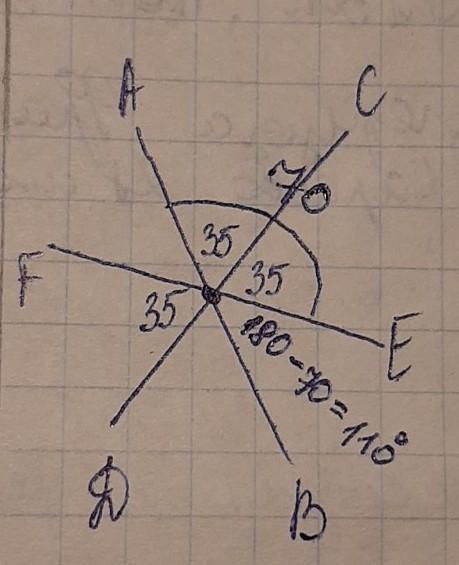 A
C
70
35
35
F
35
E
180-70=110°
D
B